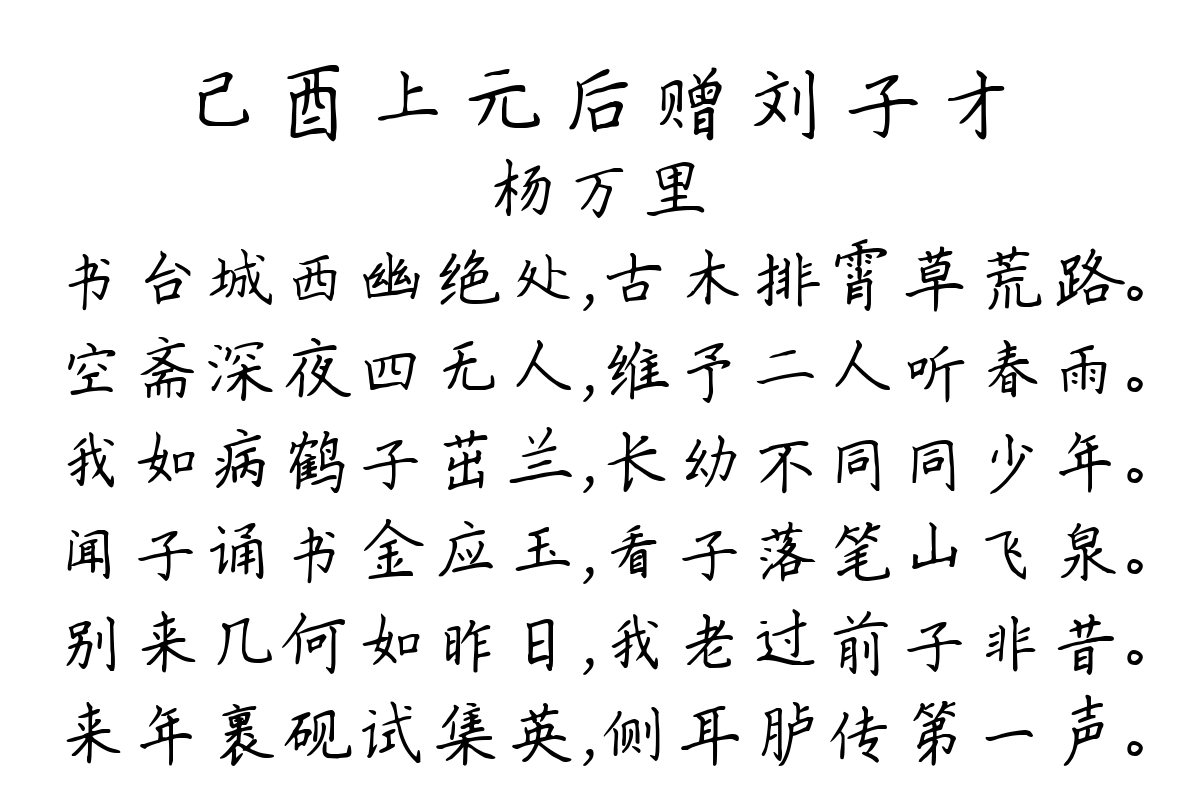 己酉上元后赠刘子才
杨万里
书台城西幽绝处,古木排霄草荒路。
空斋深夜四无人,维予二人听春雨。
我如病鹤子茁兰,长幼不同同少年。
闻子诵书金应玉,看子落笔山飞泉。
别来几何如昨日,我老过前子非昔。
来年裹砚试集英,侧耳胪传第一声。